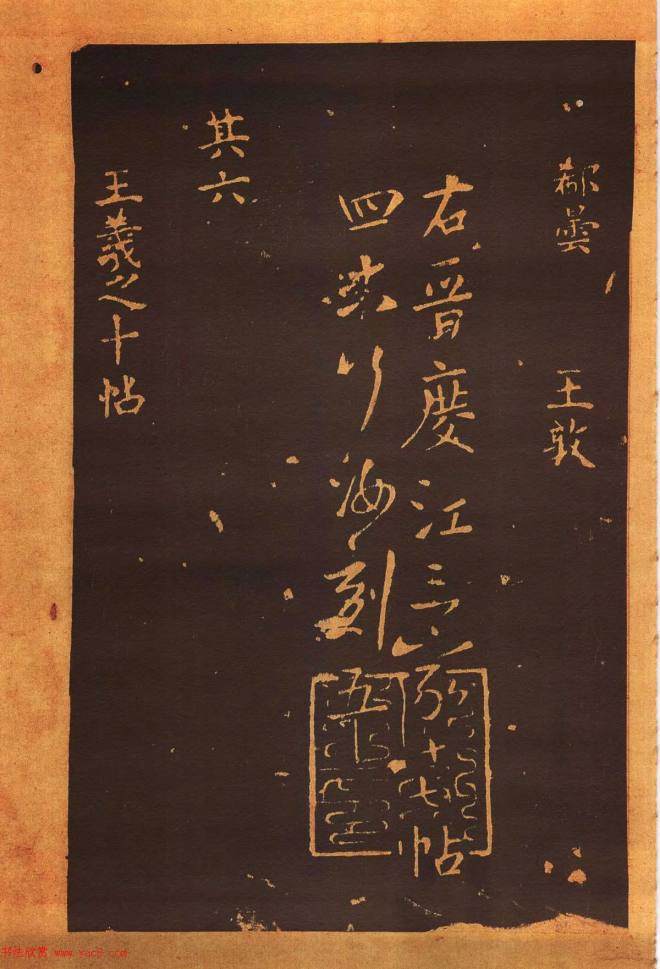 郗曇 王敦
右晉慶江三 十七帖
四 刻 五
其六
王羲之十帖
书法欣赏 www.yac8.com